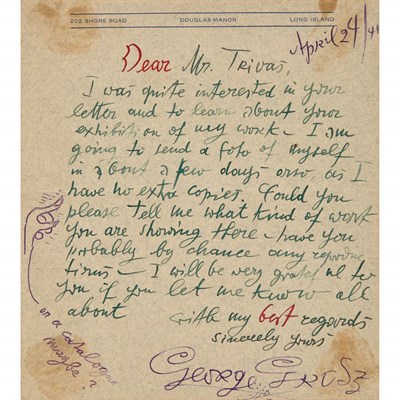 202 SHORE ROAD DOUGLAS MANOR LONG ISLAND
April 24/41
Dear Mr. Trivas,
I was quite interested in your
letter and to learn about your
exhibition of my work – I am
going to send a foto of myself
in about a few days orso, as I
have no extra copies. Could you
please tell me what kind of work
you are showing there – have you
probably by chance any reproduc
tions – I will be very grateful to
you if you let me know all
about
with my best regards
sincerely yours
George Grosz
on a catalogue
maybe?